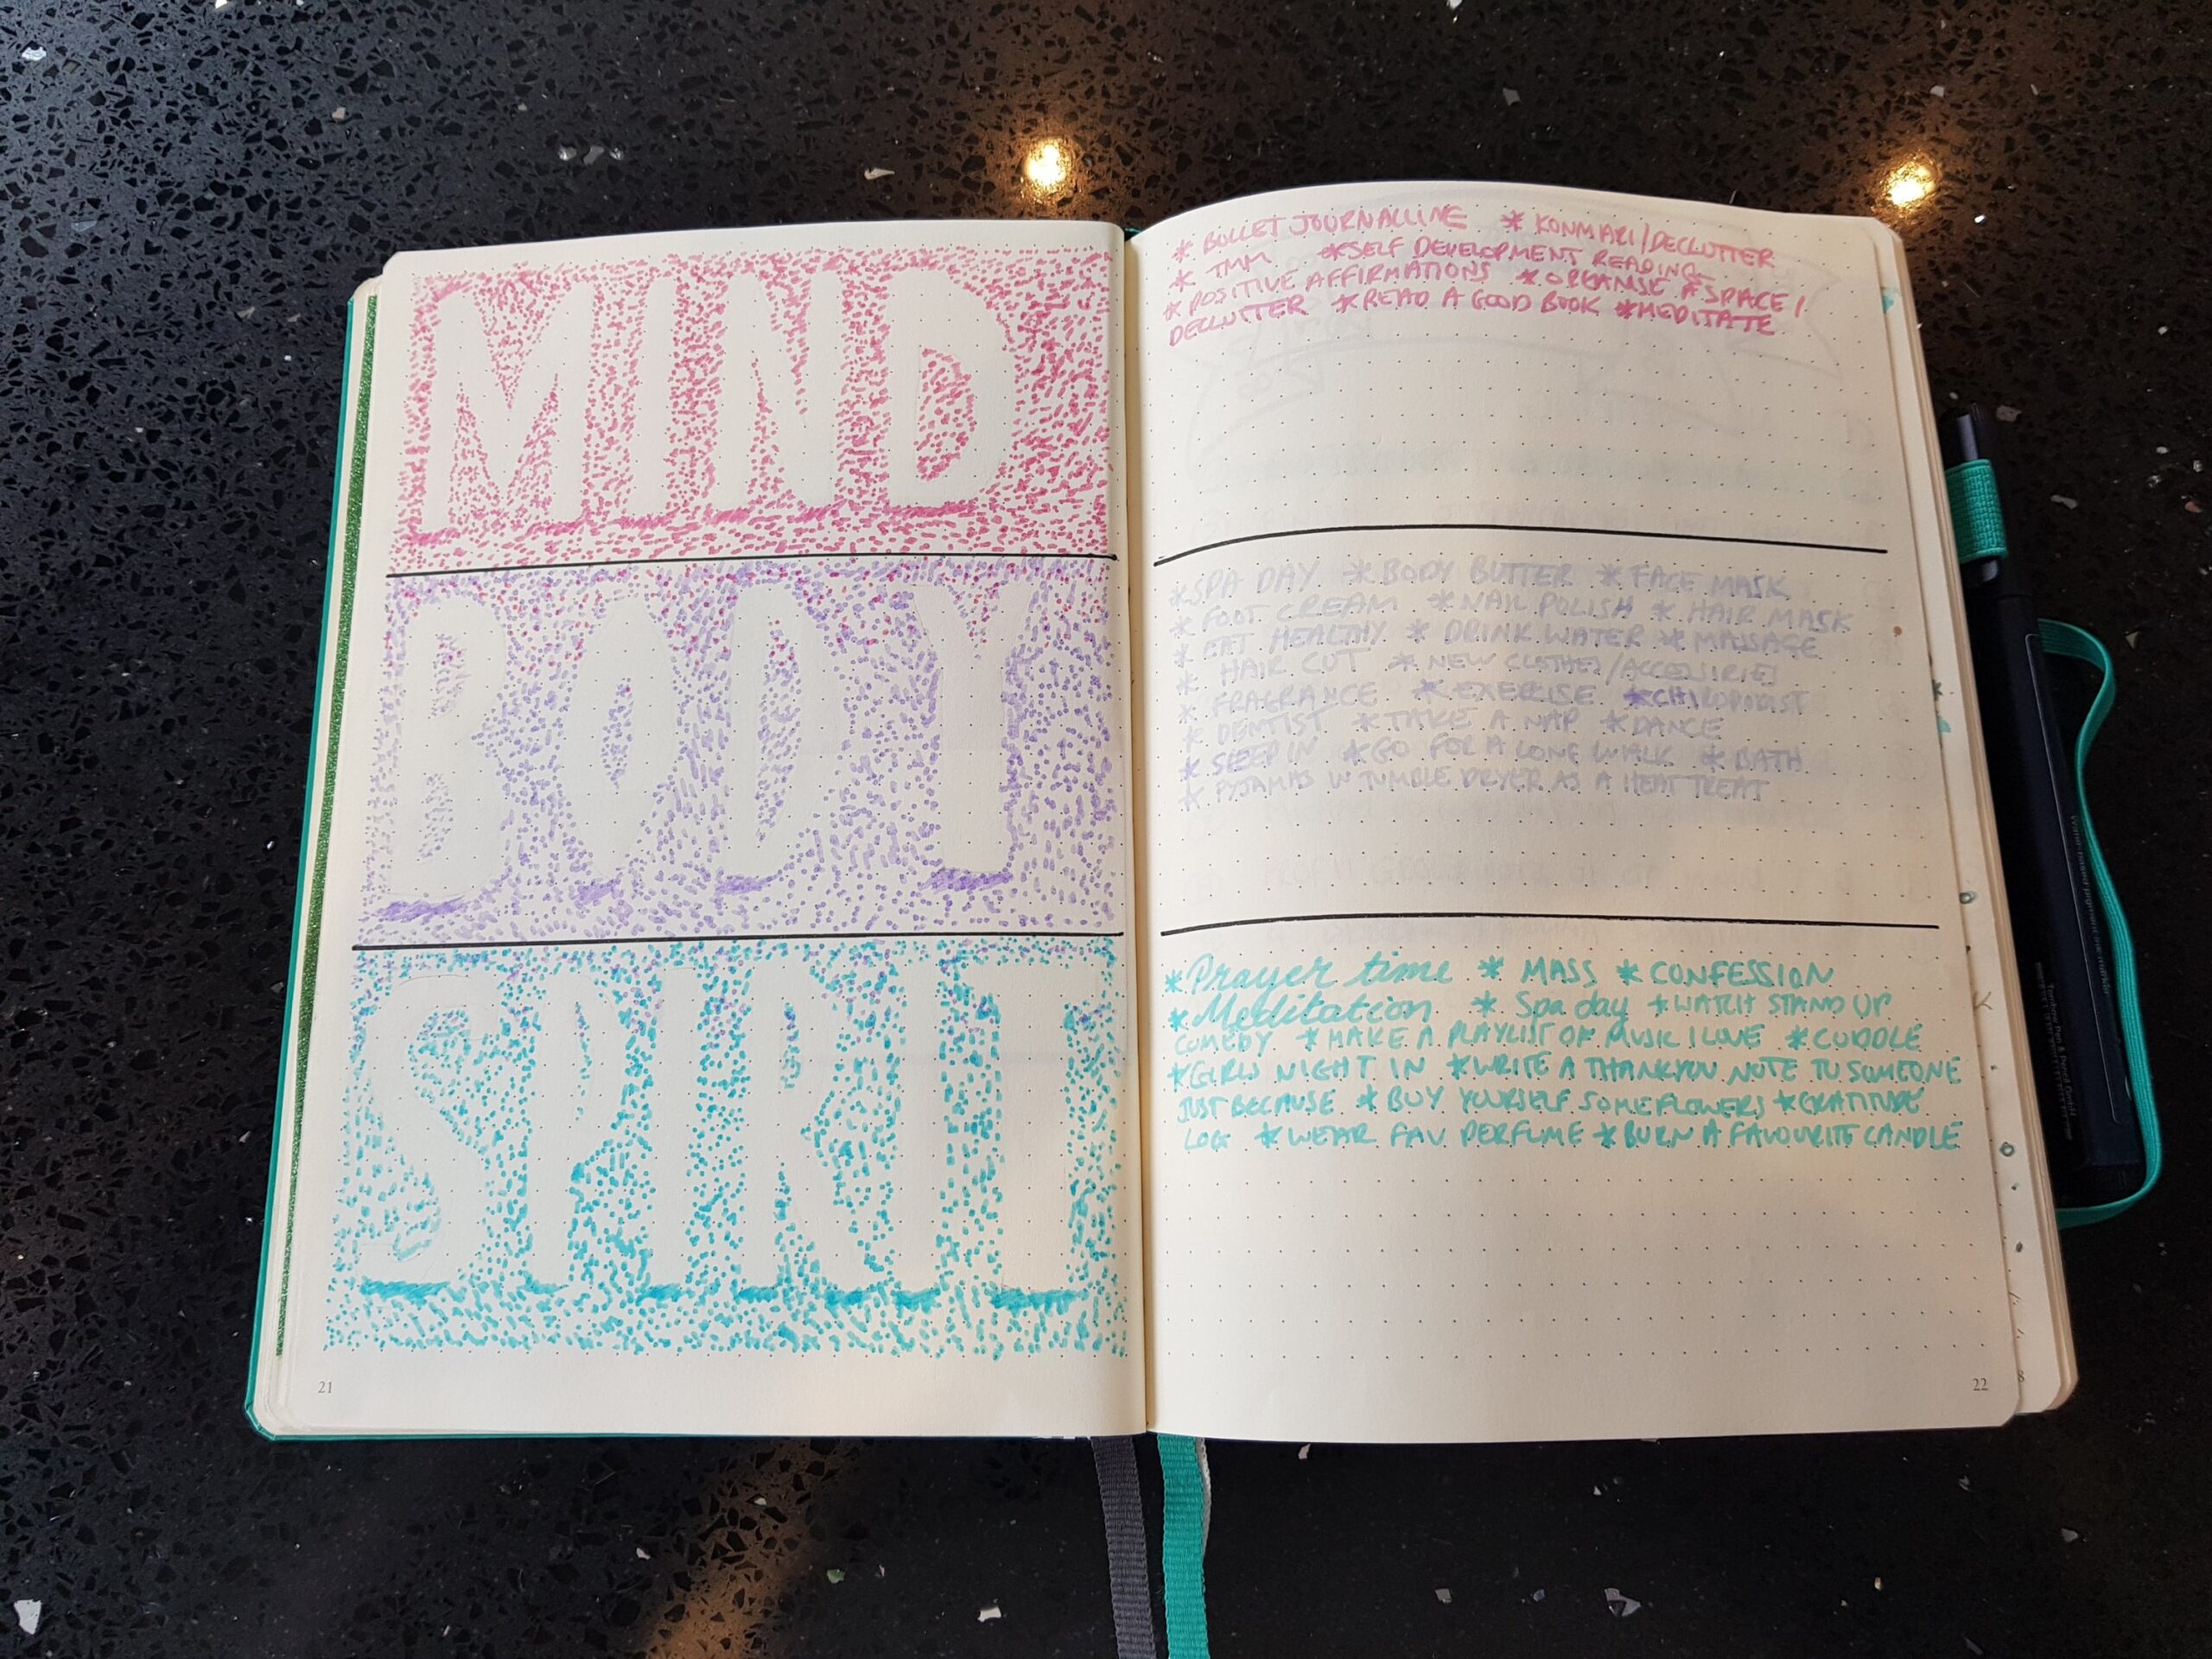 MIND
BODY
SPIRIT
21
* BULLET JOURNALLING * KONMARI/DECLUTTER
* TMM * SELF DEVELOPMENT READING
* POSITIVE AFFIRMATIONS * ORGANISE A SPACE /
DECLUTTER * READ A GOOD BOOK * MEDITATE
* SPA DAY * BODY BUTTER * FACE MASK
* FOOT CREAM * NAIL POLISH * HAIR MASK
* EAT HEALTHY * DRINK WATER * MASSAGE
* HAIR CUT * NEW CLOTHES/ACCESSORIES
* FRAGRANCE * EXERCISE * CHIROPODIST
* DENTIST * TAKE A NAP * DANCE
* SLEEP IN * GO FOR A LONG WALK * BATH
* PYJAMAS IN TUMBLE DRYER AS A HEAT TREAT
* Prayer time * MASS * CONFESSION
* Meditation * Spa day * WATCH STAND UP
COMEDY * MAKE A PLAYLIST OF MUSIC I LOVE * CUDDLE
* GIRLS NIGHT IN * WRITE A THANKYOU NOTE TO SOMEONE
JUST BECAUSE * BUY YOURSELF SOME FLOWERS * GRATITUDE
LOG * WEAR FAV. PERFUME * BURN A FAVOURITE CANDLE
22